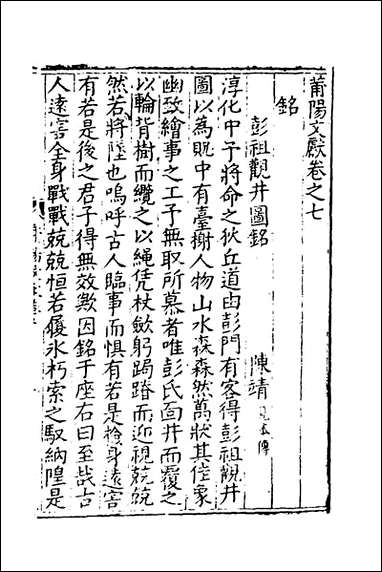 莆陽文獻卷之七
銘
彭祖觀井圖銘 陳靖 見本傳
淳化中予將命之狄丘道由彭門有客得彭祖觀井
圖以為貺中有臺榭人物山水森森然萬狀其恠象
幽致繪事之工予無取所慕者唯彭氏面井而覆之
以輪背樹而纜之以繩凭杖斂躬跼蹐而近視兢兢
然若將墜也嗚呼古人臨事而懼有若是撿身遠害
有若是後之君子得無效歟因銘于座右曰至哉古
人遠害全身戰戰兢兢恒若履氷朽索之馭納隍是